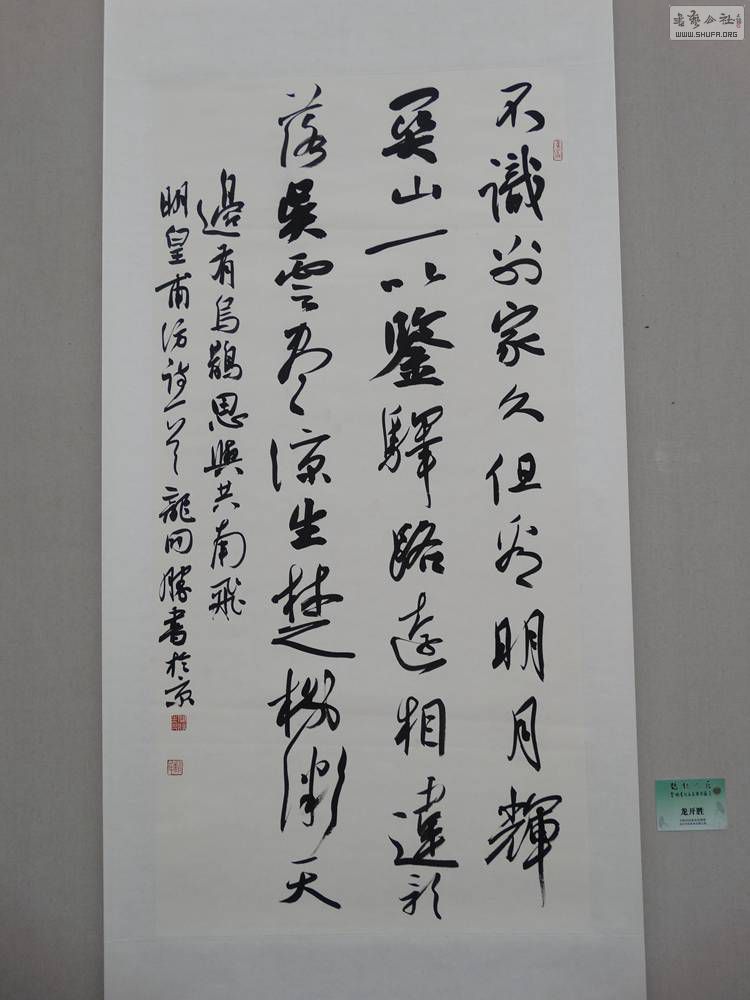 書藝公社
WWW.SHUFA.ORG
不識別家久但看明月輝
關山一以鑒驛路遠相違影
落吳雲盡涼生楚樹微天
邊有烏鵲思與共南飛
明皇甫汸詩一首龍開勝書於京
龙开胜